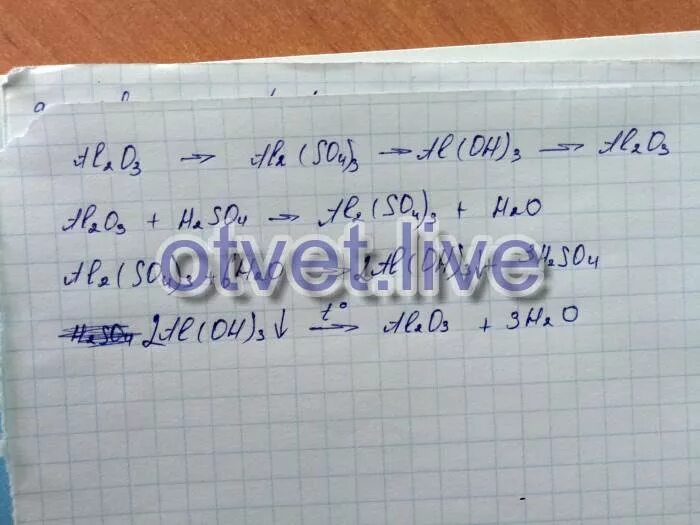 Al₂O₃ → Al₂(SO₄)₃ → Al(OH)₃ → Al₂O₃
Al₂O₃ + H₂SO₄ → Al₂(SO₄)₃ + H₂O
Al₂(SO₄)₃ + 6H₂O → 2Al(OH)₃↓ + 3H₂SO₄
otvet.live
2Al(OH)₃↓ t° → Al₂O₃ + 3H₂O